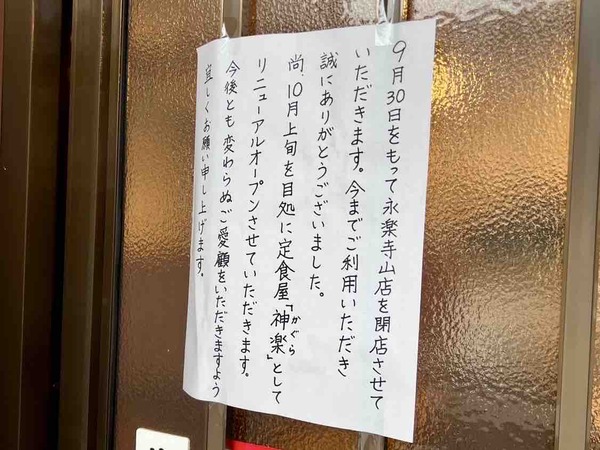 9月30日をもって永楽寺山店を閉店させて
いただきます。今までご利用いただき
誠にありがとうございました。
尚、10月上旬を目処に定食屋「神楽」として
かぐら
リニューアルオープンさせていただきます。
今後とも変わらぬご愛顧をいただきますよう
宜しくお願い申し上げます。